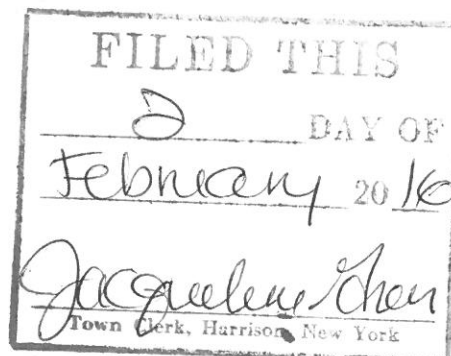 FILED THIS
2 DAY OF
February 2016
Jacqueline Greer
Town Clerk, Harrison, New York